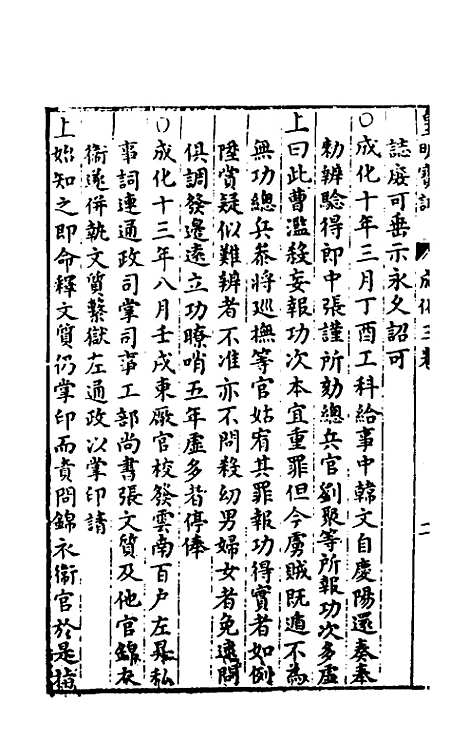 皇明寶訓 成化三卷 二
誌庶可垂示永久詔可
○成化十年三月丁酉工科給事中韓文自慶陽還奏奉
勅辨驗得郎中張謹所劾總兵官劉聚等所報功次多虛
上曰此曹濫殺妄報功次本宜重罪但今虜賊既遁不為
無功總兵叅將巡撫等官姑宥其罪報功得實者如例
陞賞疑似難辨者不准亦不問殺幼男婦女者免逮問
俱調發邊遠立功瞭哨五年虛多者停俸
○成化十三年八月壬戌東廠官校發雲南百戶左昇私
事詞連通政司掌司事工部尚書張文質及他官錦衣
衛遂併執文質繫獄左通政以掌印請
上始知之即命釋文質仍掌印而責問錦衣衛官於是指